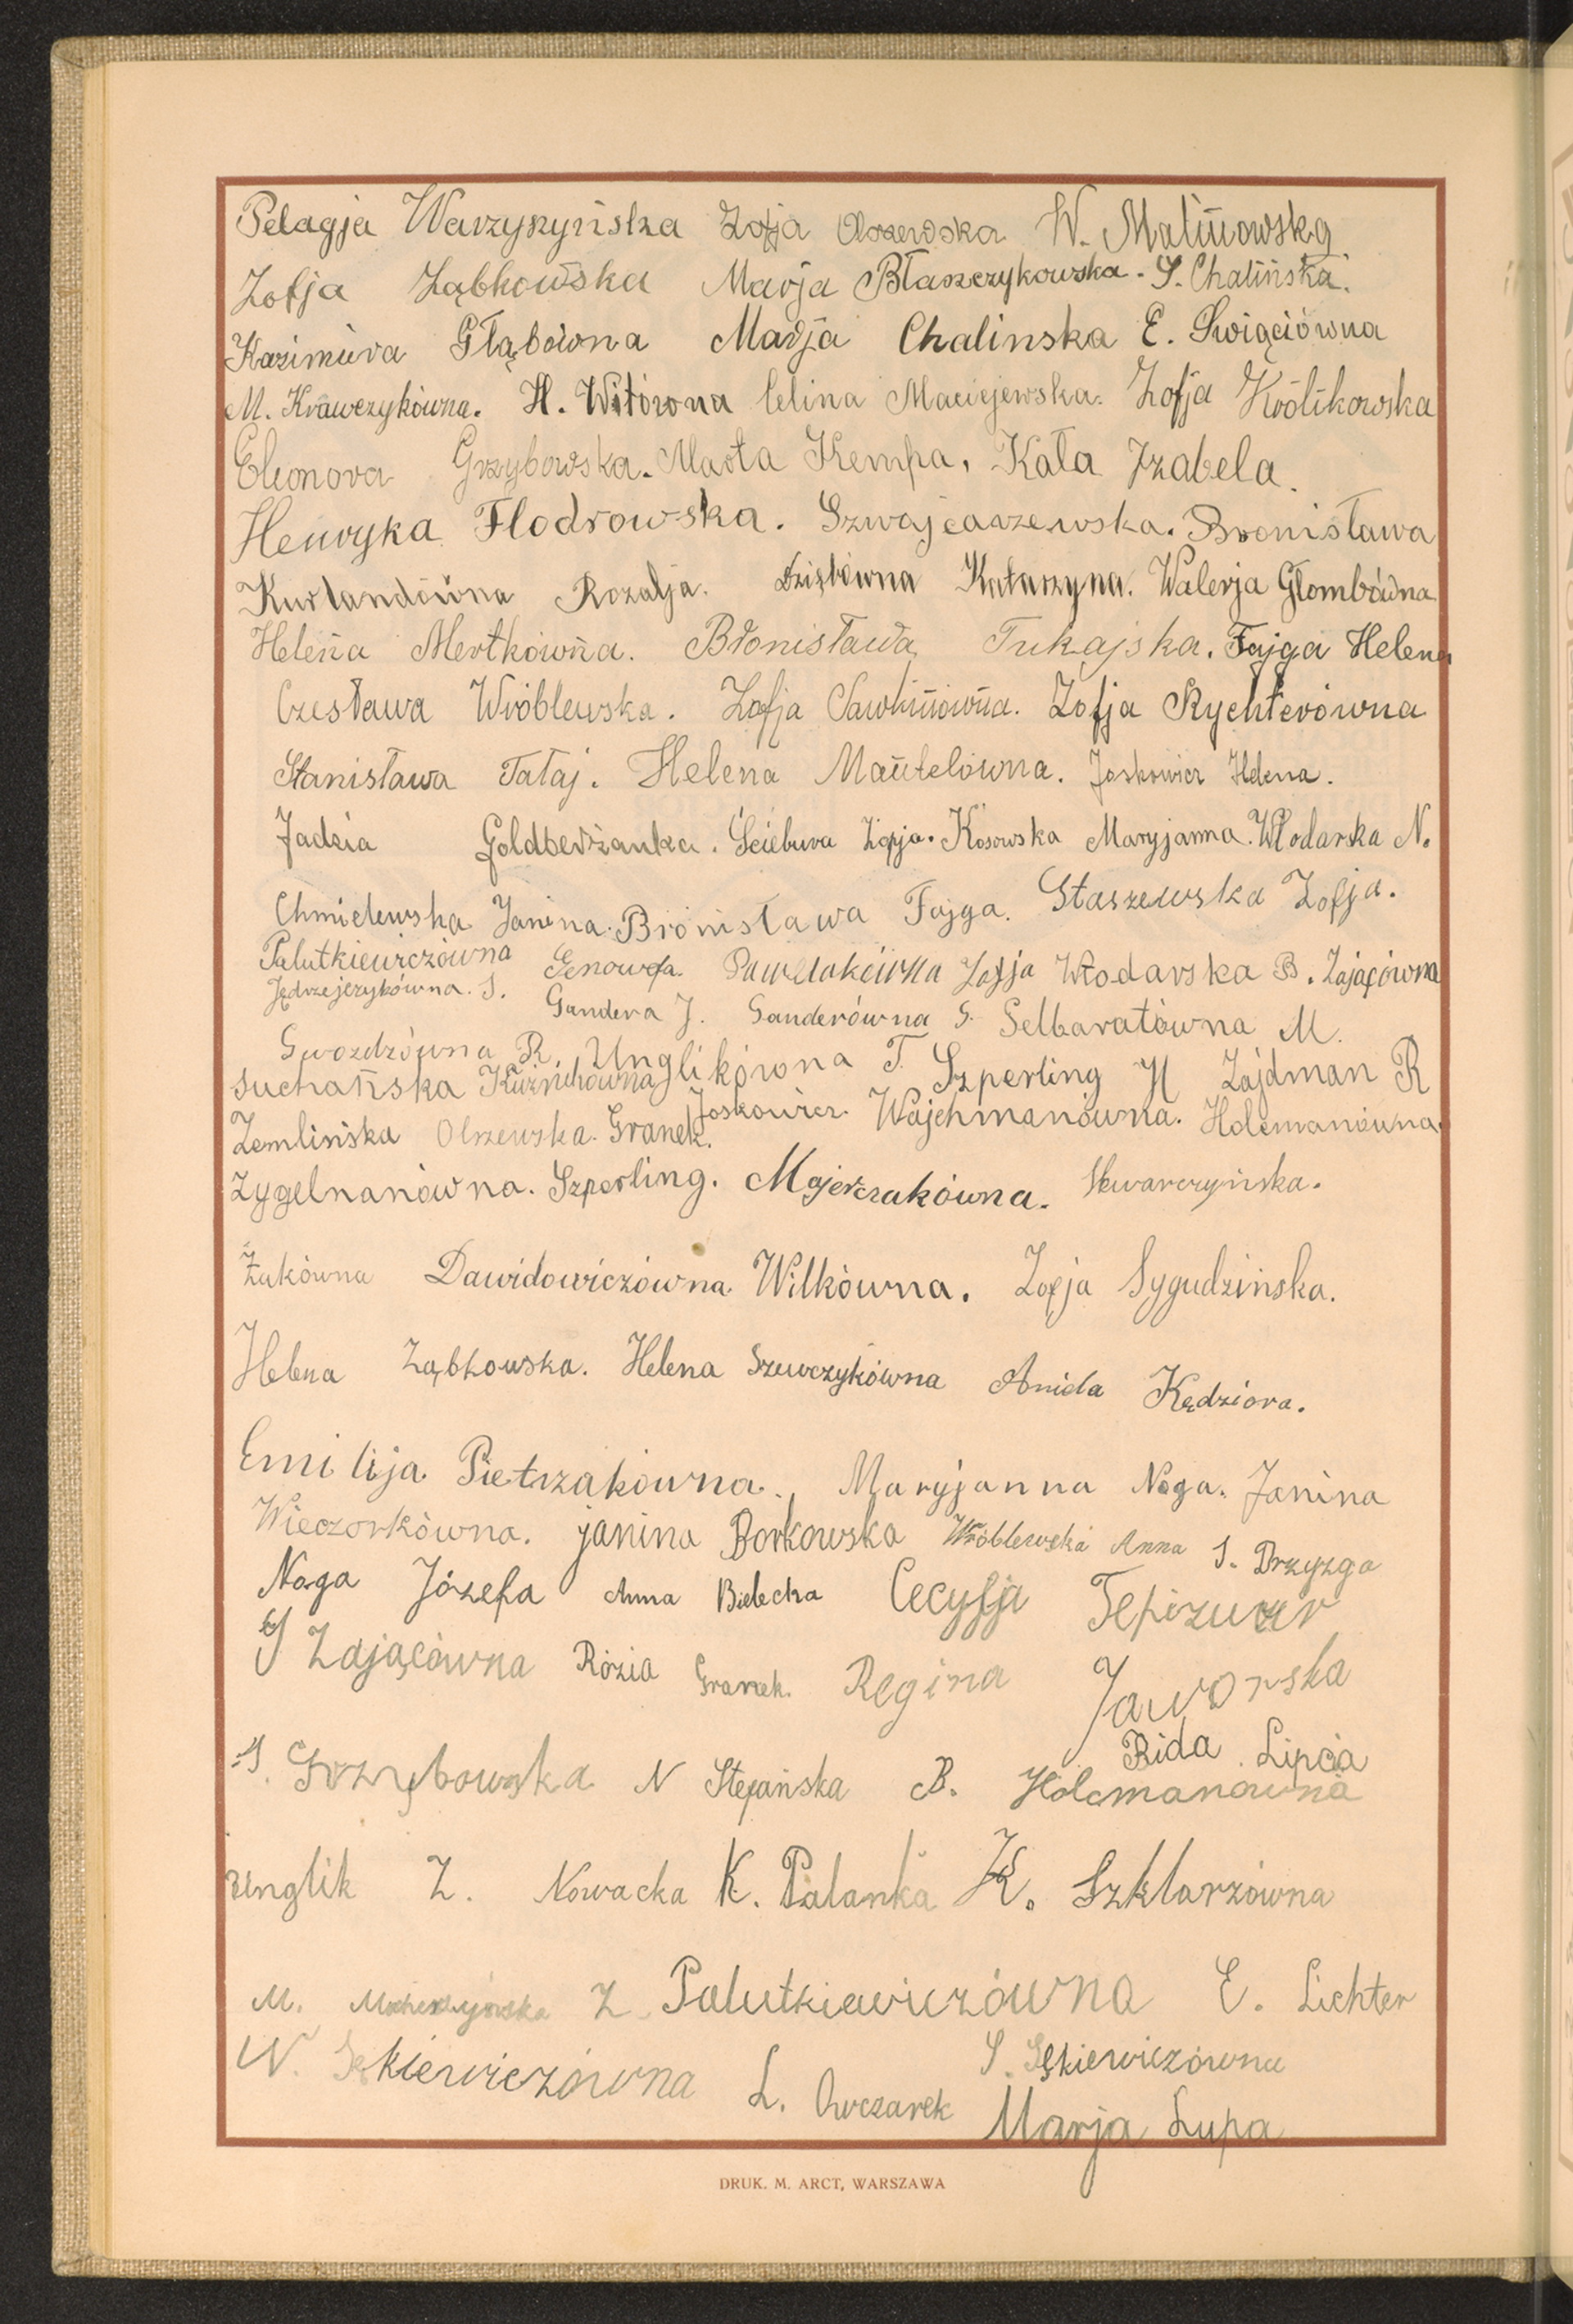 Pelagja Warzyszyńska Zofja Olszewska W. Malinowska
Zofja Ząbkowska Marja Błaszczykowska. S. Chalińska.
Kazimiera Głąbówna Marja Chalinska E. Swięciówna
M. Krawczykówna. H. Witówna Celina Maciejewska. Zofja Królikowska
Eleonora Grzybowska. Marta Kempa, Kała Izabela.
Henryka Flodrowska. Szwajcarzewska. Bronisława
Kurlandówna Rozalja. Katarzyna. Walerja Głombówna
Helena Mertkówna. Bronisława Tukajska. Fajga Helena
Czesława Wróblewska. Zofja Zofja Rychterówna
Stanisława Tataj. Helena Mantelówna. Joskowicz Helena.
Jadzia Goldberżanka. Ściebura Zofja. Kosowska Maryjanna. Włodarska N.
Chmielewska Janina. Bronisława Fajga. Staszewska Zofja.
Palutkiewiczówna Genowefa. Pawelakówna Zofja Włodarska B. Zającówna
Jędrzejczykówna. S. Gandera J. Ganderówna S. Selbaratówna M.
Gwozdzówna R. Unglikówna T. Szperling H Zajdman R
Suchańska Kuźnichówna
Zemlińska Olszewska. Granek. Joskowicz. Wajchmanówna. Holcmanówna.
Zygelnanówna. Szperling. Majerczakówna. Skwarczyńska.
Żukówna Dawidowiczówna Wilkówna. Zofja Sygudzińska.
Helena Ząbkowska. Helena Szewczykówna Anida Kędziora.
Emilija Pietrzakówna., Maryjanna Noga. Janina
Wieczorkówna. janina Borkowska Wróblewska Anna S. Drzyzga
Noga Józefa Anna Bielecka Cecylja
S Zającówna Rózia Granek. Regina Jaworska
Rida Lipcia
S. Grzybowska N Stefańska B. Holcmanówna
Unglik Z. Nowacka K. Palanka K. Szklarzówna
M. Z. Palutkiewiczówna E. Lichter
W. Sękiewiczówna L. Owczarek S. Sękiewiczówna
Marja Łupa
DRUK. M. ARCT, WARSZAWA